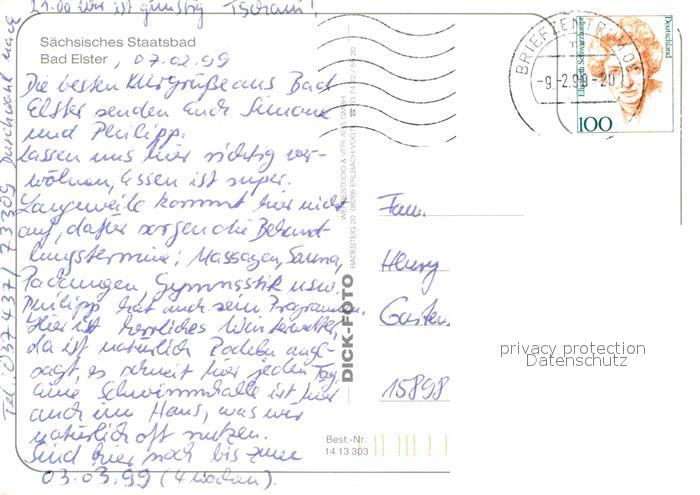 21.00 Uhr ist günstig Tschau!
Sächsisches Staatsbad
Bad Elster, 07.02.99
Die besten Kurgrüße aus Bad
Elster senden Euch Simone
und Philipp.
Lassen uns hier richtig ver-
wöhnen, Essen ist super.
Langeweile kommt hier nicht
auf, dafür sorgen die Behand-
lungstermine; Massagen, Sauna,
Packungen, Gymnastik usw.
Philipp hat auch sein Programm.
Hier ist herrliches Winterwetter,
da ist natürlich Rodeln ange-
sagt, es schneit hier jeden Tag
eine Schwimmhalle ist hier
auch im Haus, was wir
natürlich oft nutzen.
Sind hier noch bis zum
03.03.99 (4 Wochen).
Tel.: 037437/ 73309 Durchwahl nach
DICK-FOTO
BADESTEIG 20
Best.-Nr.
14 13 303
BRIEFZENTRUM 08
-9.-2.99-20
Deutschland
Elisabeth Schwarzhaupt
100
Fam.
Henry
15898
privacy protection
Datenschutz